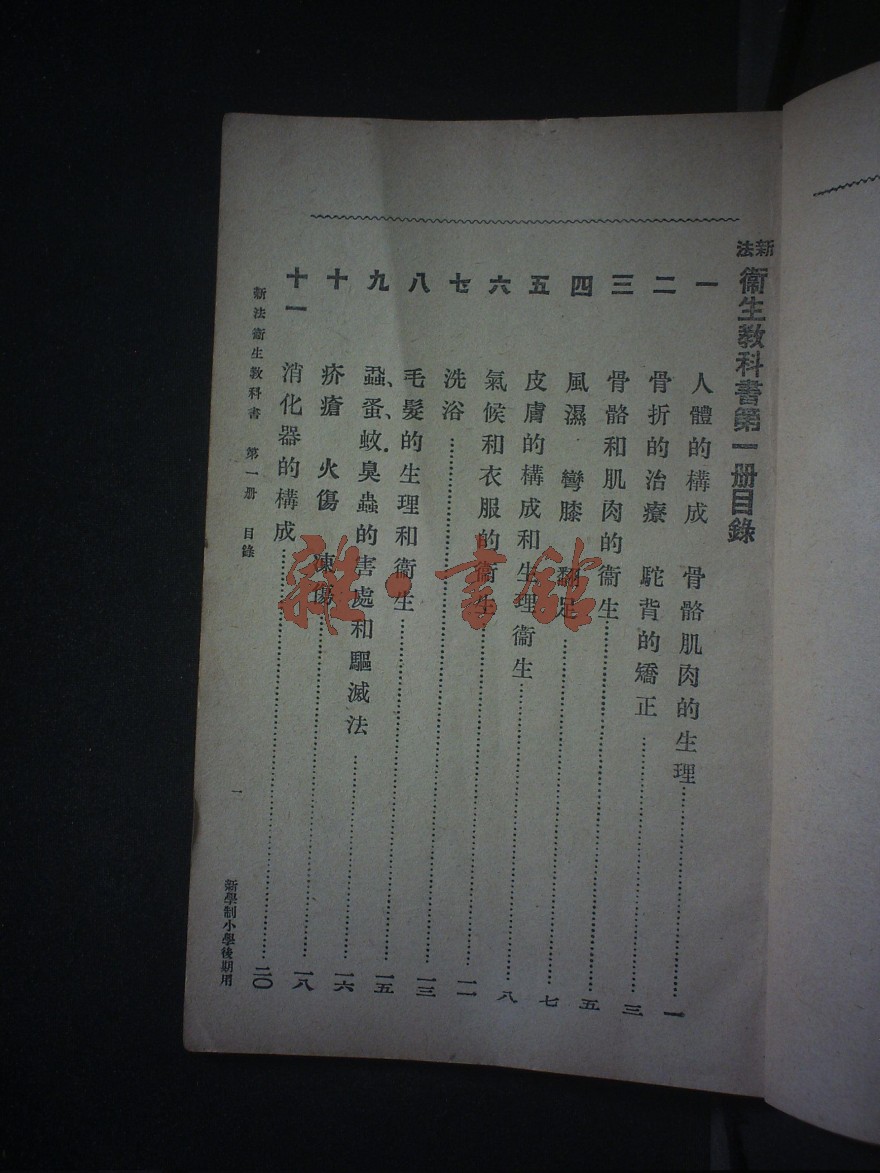 新法衞生教科書第一册目錄
一 人體的構成 骨骼肌肉的生理……一
二 骨折的治療 駝背的矯正……三
三 骨骼和肌肉的衞生……五
四 風濕 彎膝 翻足……七
五 皮膚的構成和生理衞生……八
六 氣候和衣服的衞生……一一
七 洗浴……一三
八 毛髮的生理和衞生……一五
九 蝨、蚤、蚊、臭蟲的害處和驅滅法……一六
十 疥瘡 火傷 凍傷……一八
十一 消化器的構成……二〇
新法衞生教科書 第一册 目錄
一
新學制小學後期用
雜·書館